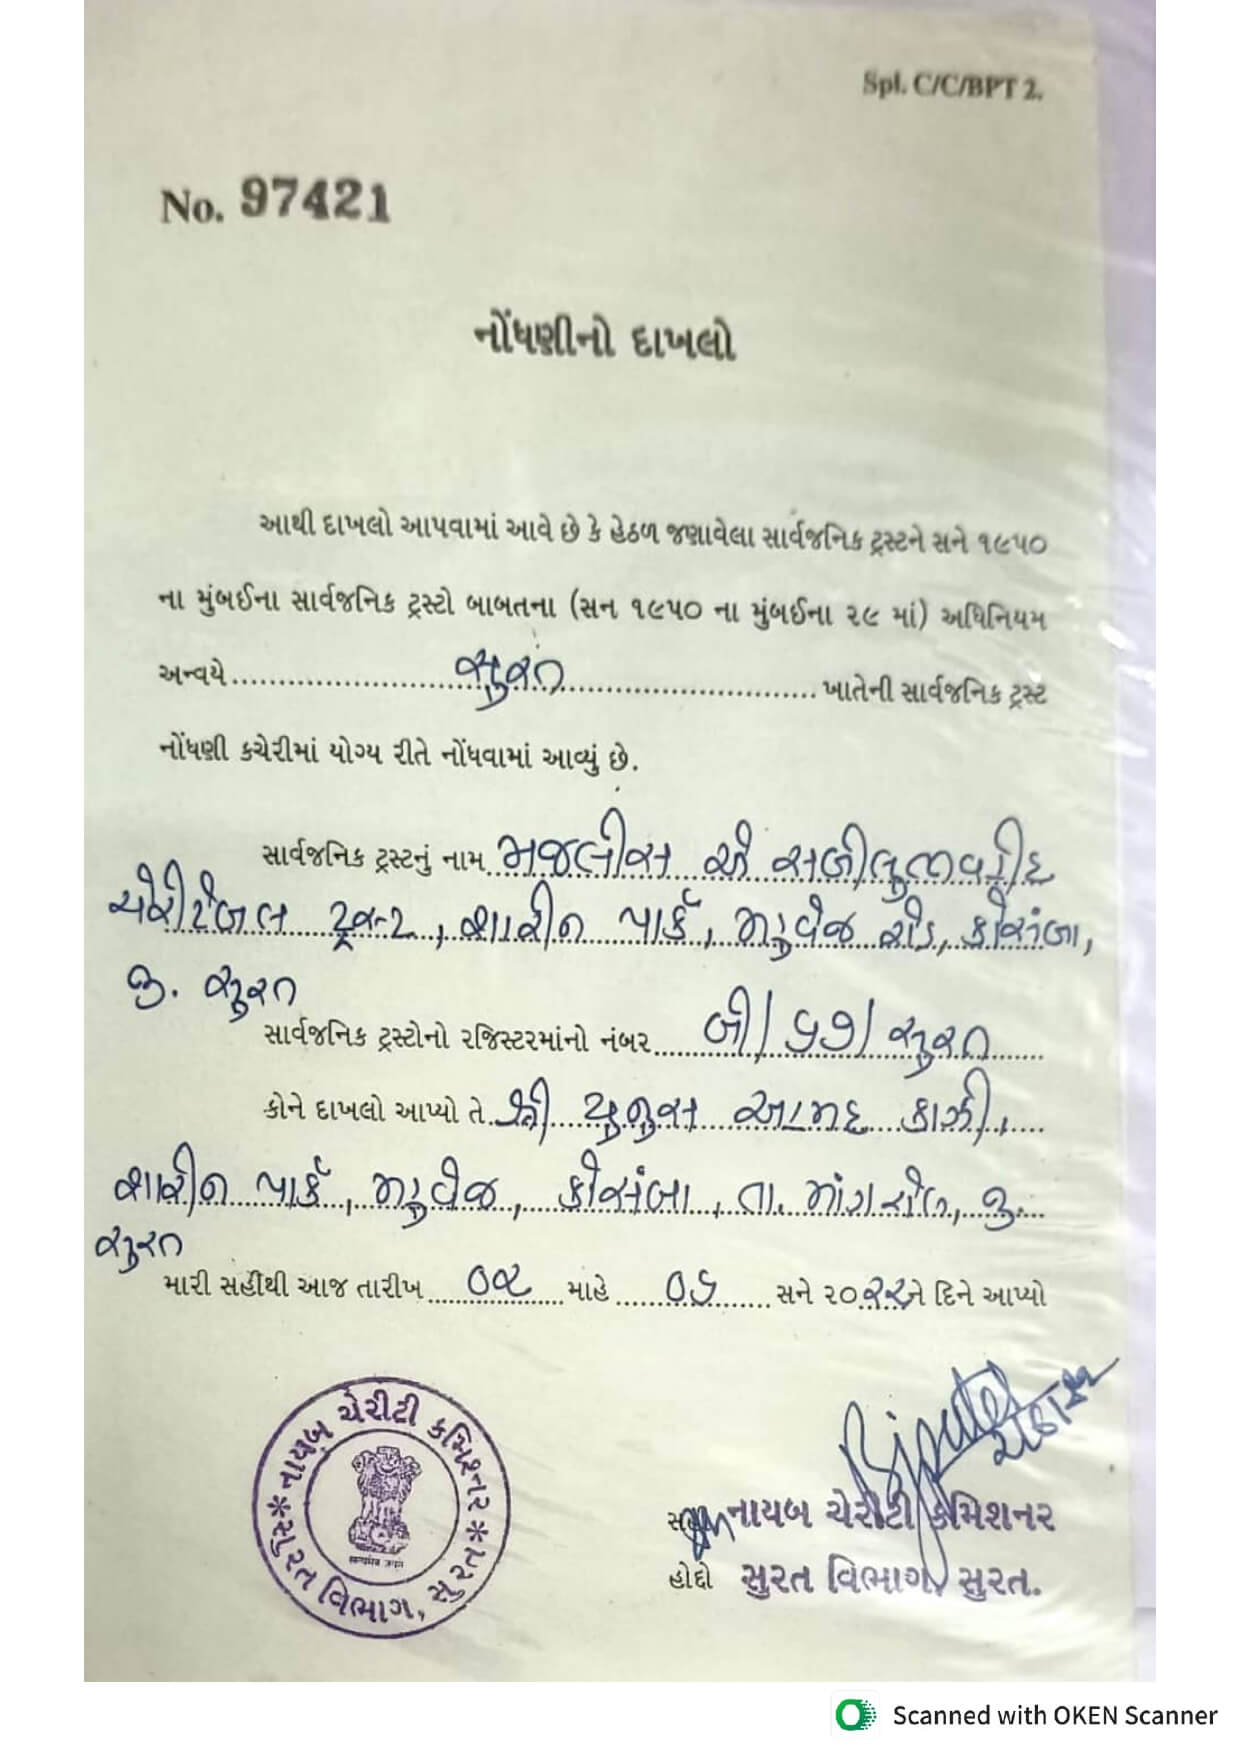 Spl. C/C/BPT 2.
No. 97421
નોંધણીનો દાખલો
આથી દાખલો આપવામાં આવે છે કે હેઠળ જણાવેલા સાર્વજનિક ટ્રસ્ટને સને ૧૯૫૦
ના મુંબઈના સાર્વજનિક ટ્રસ્ટો બાબતના (સન ૧૯૫૦ ના મુંબઈના ૨૯ માં) અધિનિયમ
અન્વયે સુરત ખાતેની સાર્વજનિક ટ્રસ્ટ
નોંધણી કચેરીમાં યોગ્ય રીતે નોંધવામાં આવ્યું છે.
સાર્વજનિક ટ્રસ્ટનું નામ મજલીસ એ
ચેરીટેબલ ટ્રસ્ટ, શાહીન પાર્ક, મહુવેજ રોડ, કોસંબા,
જી. સુરત
સાર્વજનિક ટ્રસ્ટોનો રજિસ્ટરમાંનો નંબર બી/ /સુરત
કોને દાખલો આપ્યો તે શ્રી યુનુસ અહમદ કાઝી,
શાહીન પાર્ક, મહુવેજ, કોસંબા, તા. માંગરોળ, જી.
સુરત
મારી સહીથી આજ તારીખ ૦૨ માહે ૦૬ સને ૨૦૨૨ને દિને આપ્યો
નાયબ ચેરીટી કમિશ્નર
* સુરત વિભાગ, સુરત *
નાયબ ચેરીટી કમિશનર
હોદ્દો સુરત વિભાગ, સુરત.
Scanned with OKEN Scanner